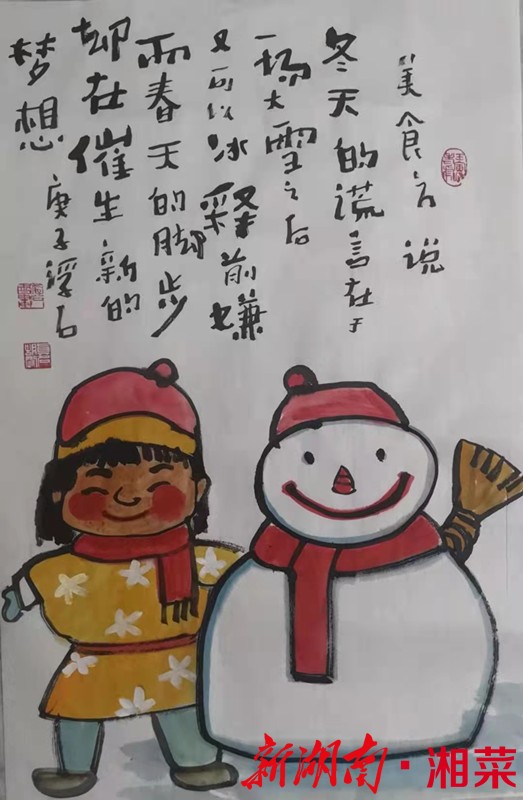 美食方说
冬天的谎言在于
一场大雪之后
又可以冰释前嫌
而春天的脚步
却在催生新的
梦想 庚子浮石
新湖南·湘菜